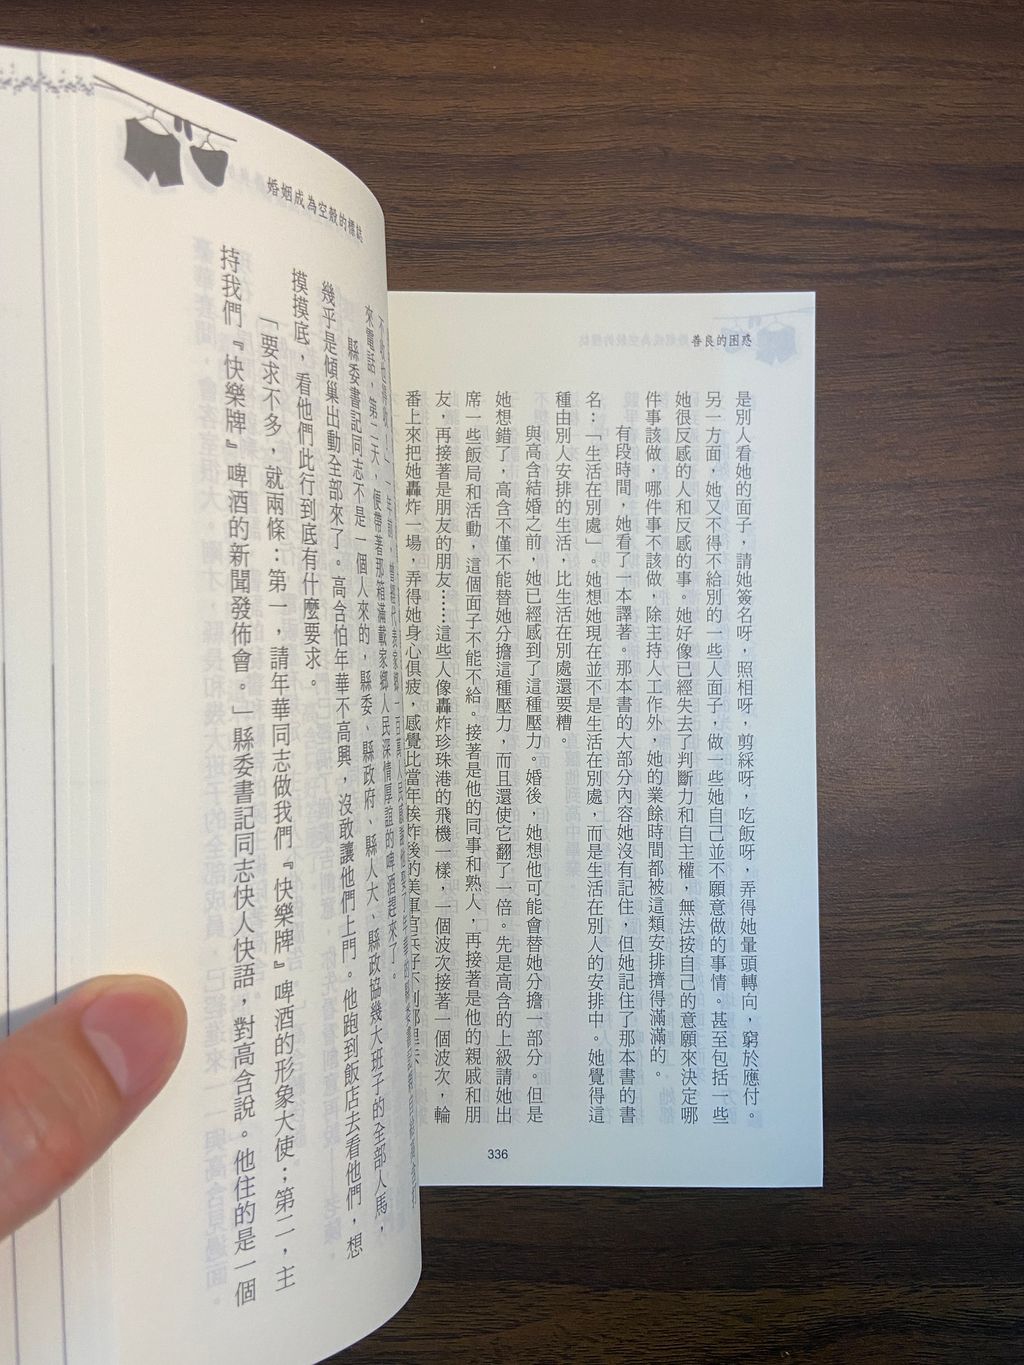 善良的困惑
是別人看她的面子，請她簽名呀，照相呀，剪綵呀，吃飯呀，弄得她暈頭轉向，窮於應付。
另一方面，她又不得不給別的一些人面子，做一些她自己並不願意做的事情。甚至包括一些
她很反感的人和反感的事。她好像已經失去了判斷力和自主權，無法按自己的意願來決定哪
件事該做，哪件事不該做，除主持人工作外，她的業餘時間都被這類安排擠得滿滿的。
有段時間，她看了一本譯著。那本書的大部分內容她沒有記住，但她記住了那本書的書
名：「生活在別處」。她想她現在並不是生活在別處，而是生活在別人的安排中。她覺得這
種由別人安排的生活，比生活在別處還要糟。
與高含結婚之前，她已經感到了這種壓力。婚後，她想他可能會替她分擔一部分。但是
她想錯了，高含不僅不能替她分擔這種壓力，而且還使它翻了一倍。先是高含的上級請她出
席一些飯局和活動，這個面子不能不給。接著是他的同事和熟人，再接著是他的親戚和朋
友，再接著是朋友的朋友……這些人像轟炸珍珠港的飛機一樣，一個波次接著一個波次，輪
番上來把她轟炸一場，弄得她身心俱疲，感覺比當年挨炸後的美軍官兵好
336
婚姻成為空殼的標誌
來電話，第二天，便帶著那箱滿載家鄉人民深情厚誼的啤酒趕來了。
縣委書記同志不是一個人來的，縣委、縣政府、縣人大、縣政協幾大班子的全部人馬，
幾乎是傾巢出動全部來了。高含怕年華不高興，沒敢讓他們上門。他跑到飯店去看他們，想
摸摸底，看他們此行到底有什麼要求。
「要求不多，就兩條：第一，請年華同志做我們『快樂牌』啤酒的形象大使；第二，主
持我們『快樂牌』啤酒的新聞發佈會。」縣委書記同志快人快語，對高含說。他住的是一個